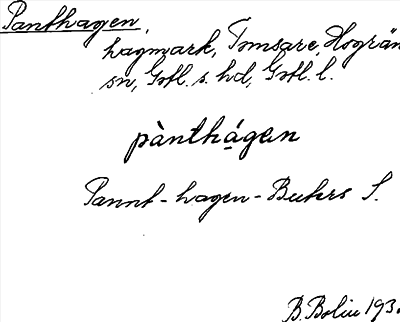 Panthagen,
hagmark, Tomsare, Hogrän
sn, Gotl. s. hd, Gotl. l.
pànthágen
Pannt-hagen-Buters S.
B. Bolin 193.